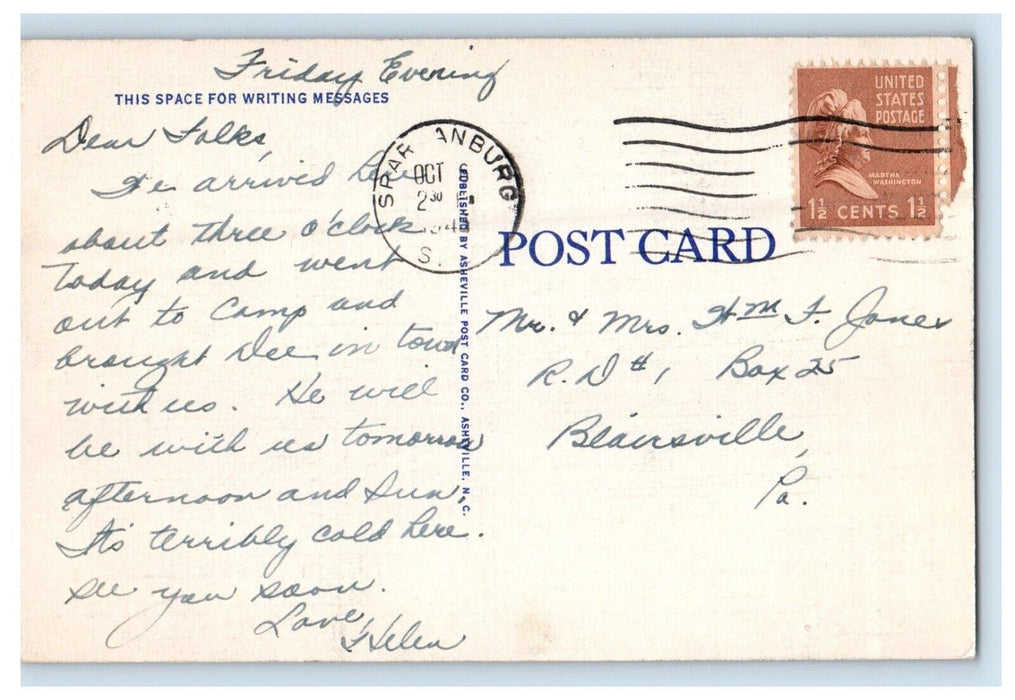 Friday Evening
THIS SPACE FOR WRITING MESSAGES
Dear Folks,
We arrived here
about three o'clock
today and went
out to Camp and
brought Dee in town
with us. He will
be with us tomorrow
afternoon and Sun.
It's terribly cold here.
See you soon.
Love,
Helen
SPARTANBURG
OCT 6
2 30
194
S.
PUBLISHED BY ASHEVILLE POST CARD CO., ASHEVILLE, N. C.
UNITED
STATES
POSTAGE
MARTHA
WASHINGTON
1½ CENTS 1½
POST CARD
Mr. & Mrs. Wm F. Jones
R. D #1 Box 25
Blairsville,
Pa.